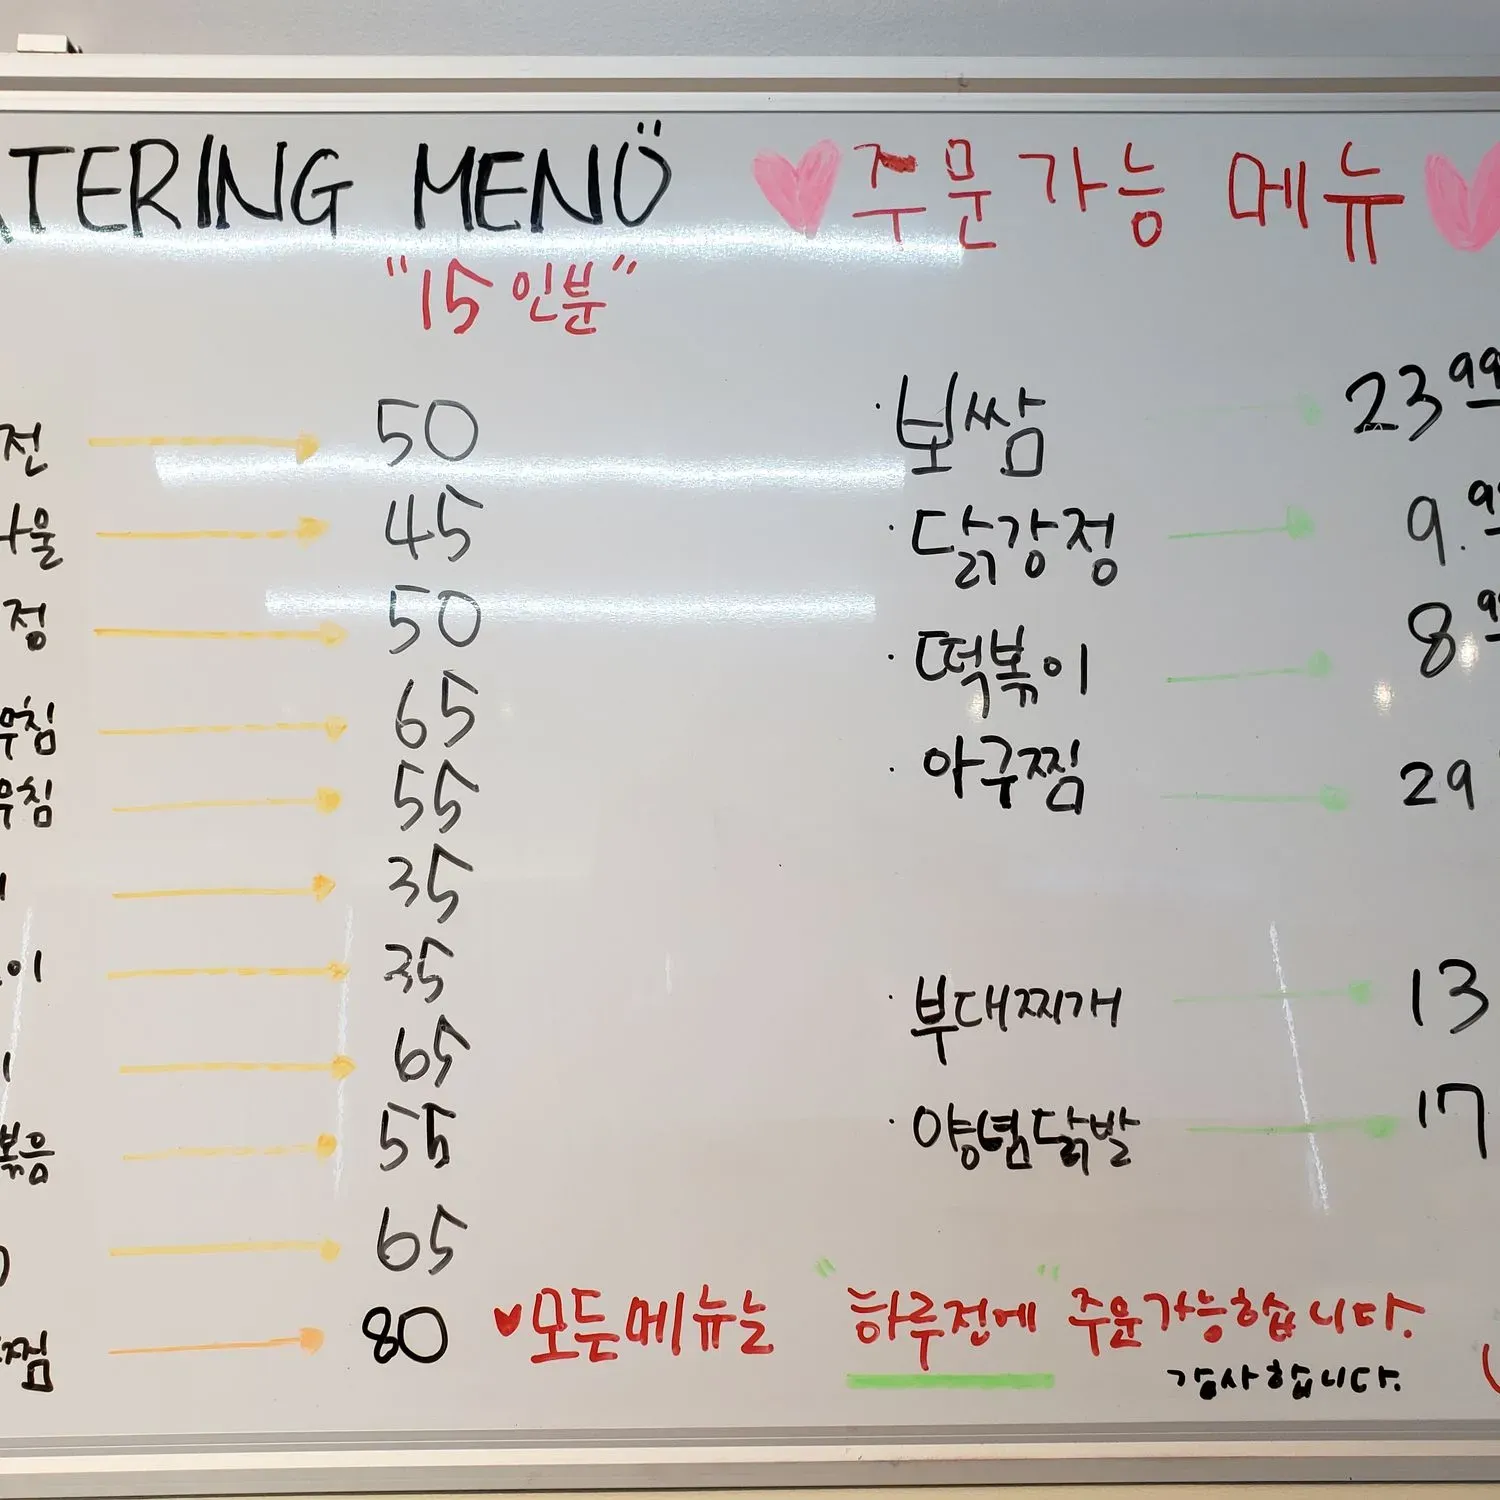 TERING MENU
"15 인분"
전 50
나물 45
정 50
무침 65
무침 55
35
이 35
65
볶음 55
65
찜 80
♥ 주문 가능 메뉴 ♥
· 보쌈 23.99
· 닭강정 9.99
· 떡볶이 8.99
· 아구찜 29
· 부대찌개 13
· 양념닭발 17
♥모든메뉴는 "하루전에" 주문가능합니다.
감사합니다.